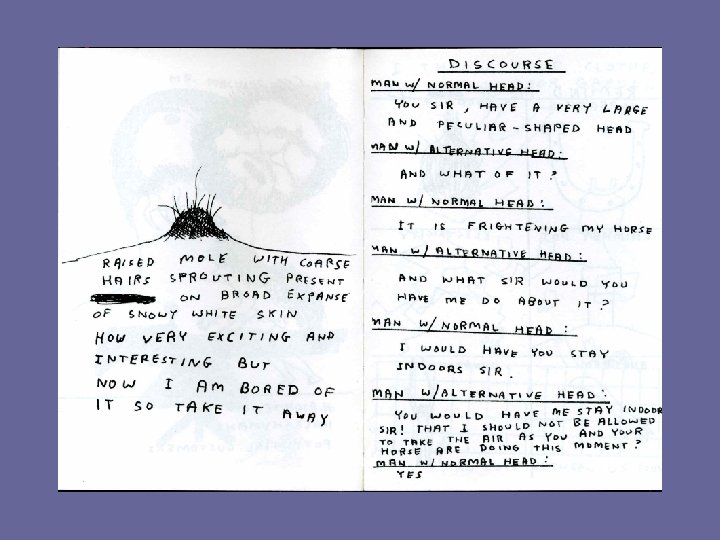 RAISED MOLE WITH COARSE
HAIRS SPROUTING PRESENT
ON BROAD EXPANSE
OF SNOWY WHITE SKIN
HOW VERY EXCITING AND
INTERESTING BUT
NOW I AM BORED OF
IT SO TAKE IT AWAY
DISCOURSE
MAN W/ NORMAL HEAD:
YOU SIR, HAVE A VERY LARGE
AND PECULIAR-SHAPED HEAD
MAN W/ ALTERNATIVE HEAD:
AND WHAT OF IT?
MAN W/ NORMAL HEAD:
IT IS FRIGHTENING MY HORSE
MAN W/ ALTERNATIVE HEAD:
AND WHAT SIR WOULD YOU
HAVE ME DO ABOUT IT?
MAN W/ NORMAL HEAD:
I WOULD HAVE YOU STAY
INDOORS SIR.
MAN W/ALTERNATIVE HEAD:
YOU WOULD HAVE ME STAY INDOOR
SIR! THAT I SHOULD NOT BE ALLOWED
TO TAKE THE AIR AS YOU AND YOUR
HORSE ARE DOING THIS MOMENT?
MAN W/ NORMAL HEAD:
YES